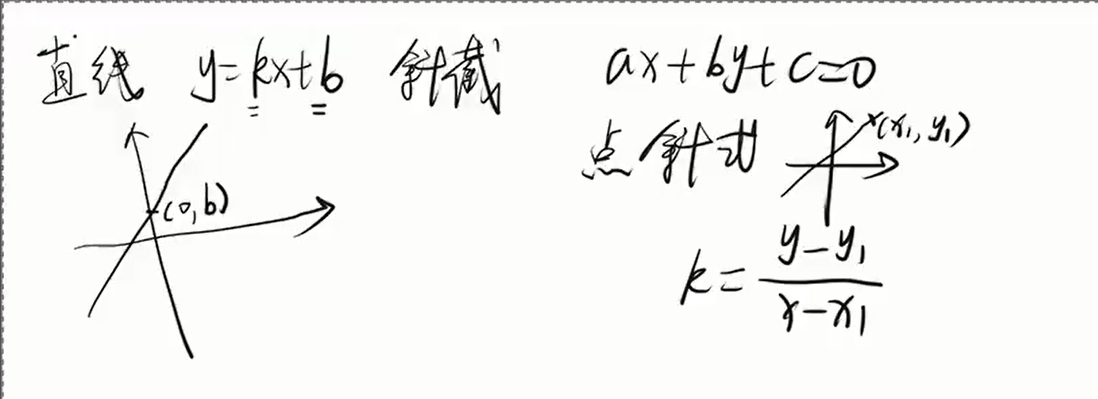 直线 y=kx+b 斜截
(0,b)
ax+by+c=0
点斜式
(x₁,y₁)
k=\frac{y-y₁}{x-x₁}